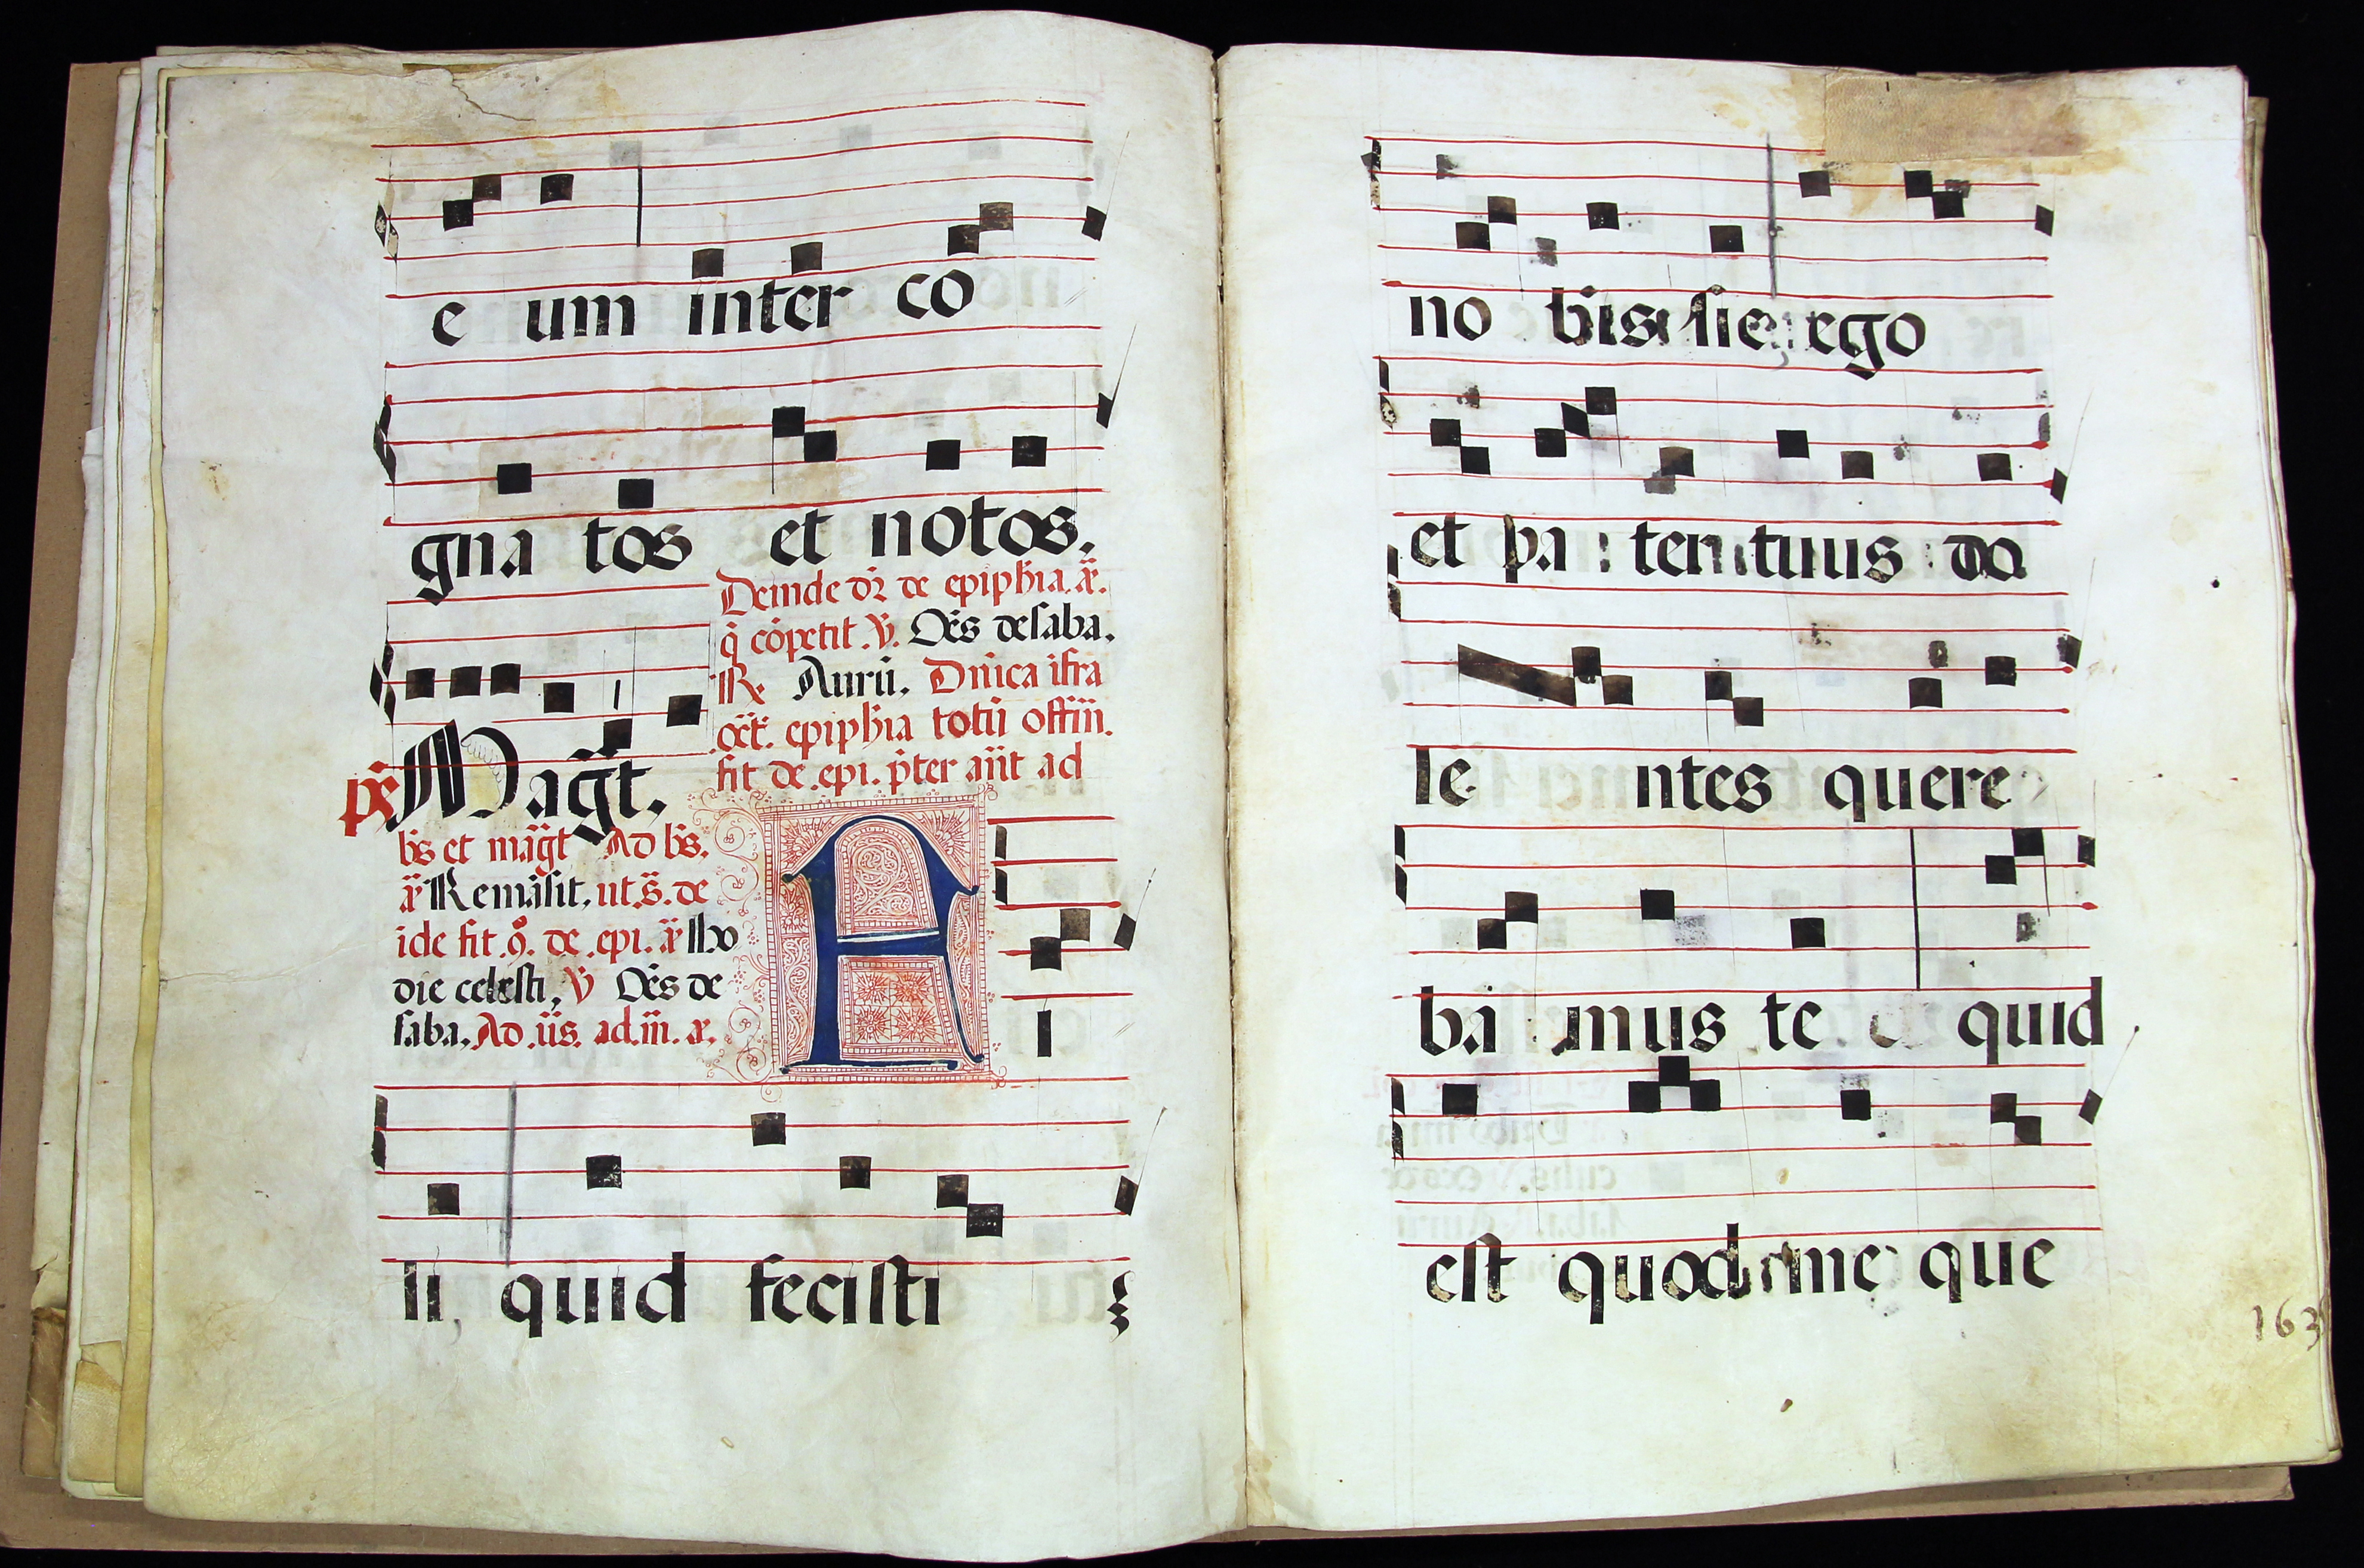 e um inter co
gna tos et notos.
Deinde or̄ de epiph̄ia. añ.
q̄ cōpetit. V̄. Om̄s de saba.
R̄e Aurū. Dn̄ica ifra
oct̄. epiph̄ia totū offm̄.
fit de. epi. p̄ter ant̄ ad
p̄s Mag̃t.
bn̄s et mag̃t Ad bn̄s.
añ Remāsit, ut. s̄. de
ide fit. 9. de. epi. añ Ho
die celesti, V̄ Om̄s de
saba. Ad. iīs. ad. m̄. añ.
A I
li, quid fecisti
no bis sic ego
et pa ter tuus do
le ntes quere
ba mus te quid
est quod me que
163